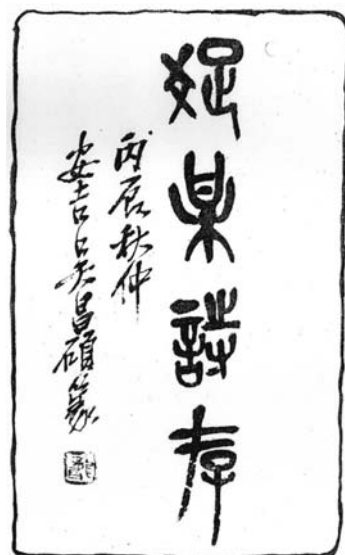 某詩存
丙辰秋仲
安吉吳昌碩篆